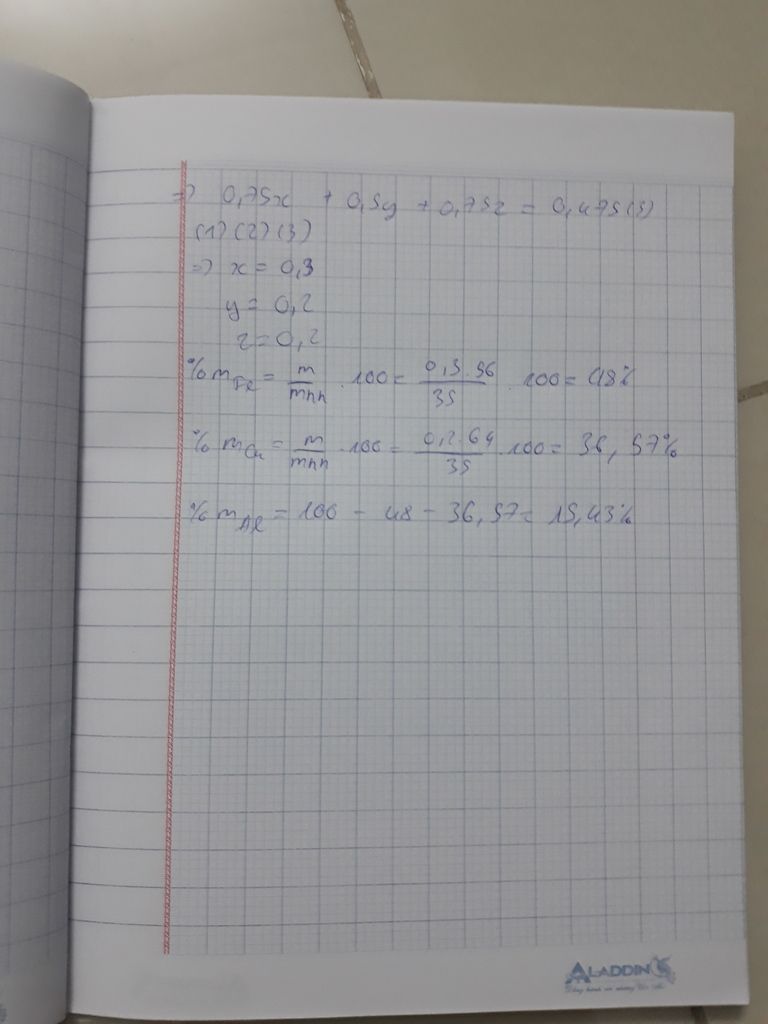 => 0,75x + 0,5y + 0,75z = 0,475 (3)
(1) (2) (3)
=> x = 0,3
y = 0,2
z = 0,2
% mFe = m/mhh . 100 = 0,3.56/35 . 100 = 48%
% mCu = m/mhh . 100 = 0,2.64/35 . 100 = 36,57%
% mAl = 100 - 48 - 36,57 = 15,43%
ALADDIN